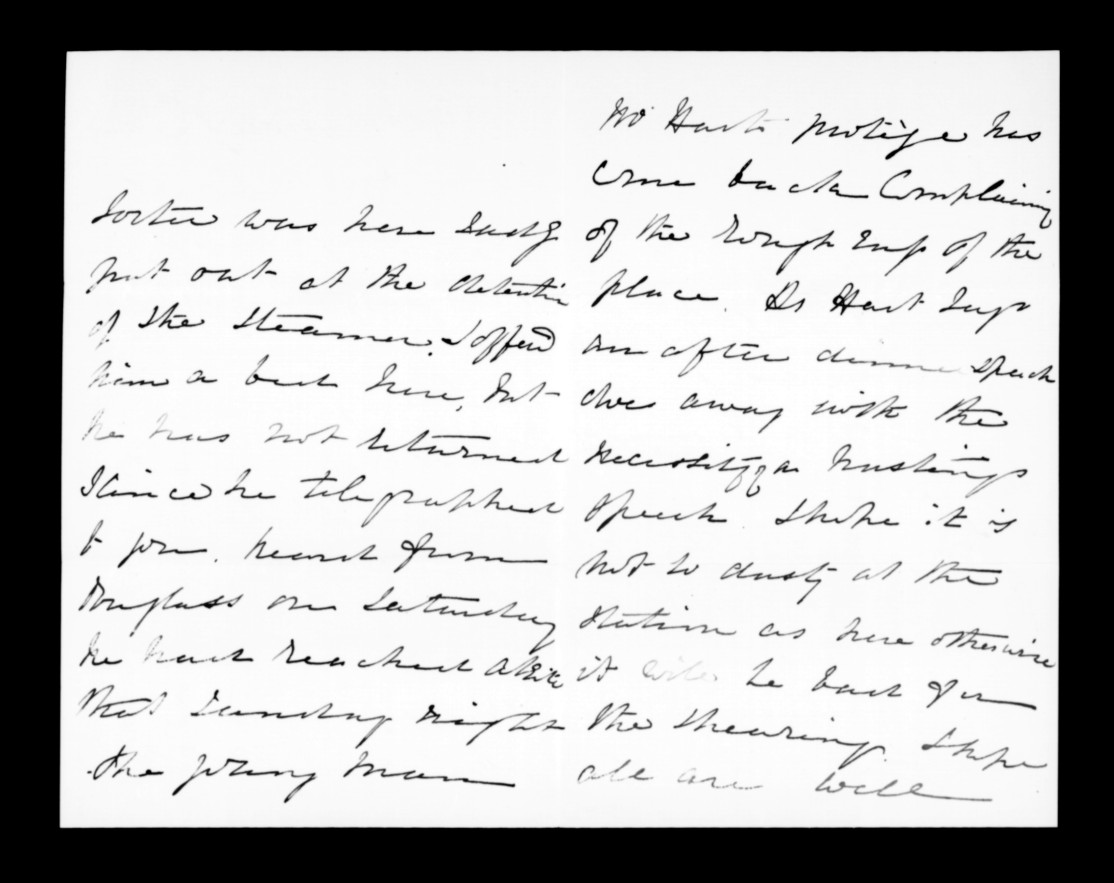 was here Sadly
put out at the detention
of the Steamer. I offered
him a bed here, but
he has not returned
since he telegraphed
to you. heard from
Douglass on Saturday
he had reached
that Sunday night
the young man
Mr Harts protége has
come back Complaining
of the rough of the
place. As Hart says
an after dinner speech
does away with the
necessity of a hustings
speech. I hope it is
not so dusty at the
Station as here otherwise
it will be bad for
the shearing. I hope
all are well